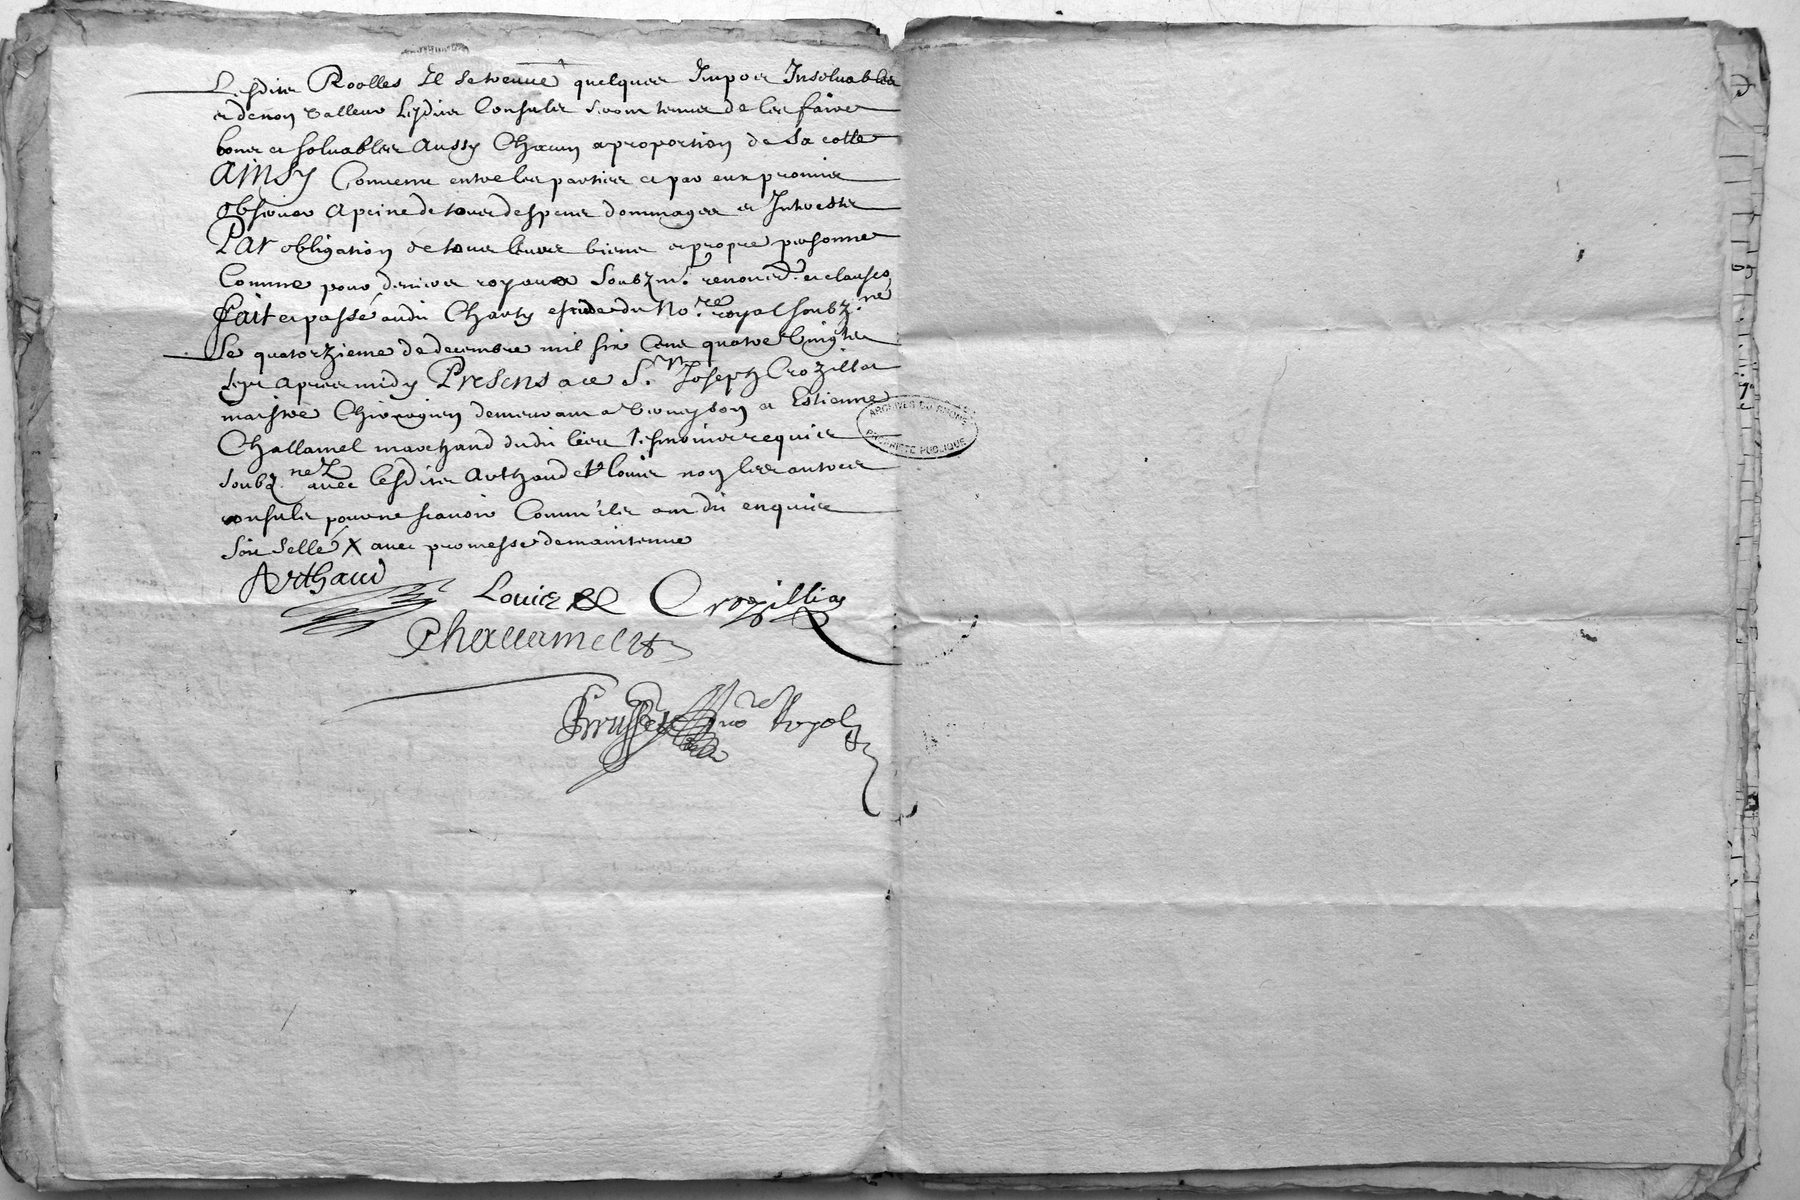 Lesdits Roolles Il se treuve quelques Impots Insolvables
et de non valleur Lesdits Consuls seront tenus de les faire
bons et solvables Aussy Chacun a proportion de Sa cotte
AINSY Convenu entre les parties et par eux promis
observer a peine de tous despens dommages et Interests
PAR obligation de tous leurs biens et propre personne
Comme pour deniers royaux Soubzm.on renonc.on et clauses
fait et passé audit Charly estude du No.re royal soubz.né
Le quatorzieme de decembre mil six Cens quatre Vingts
sept apres midy PRESENS a ce S.r Joseph Crozillat
maistre Chirurgien demeurant a Verneyson et Estienne
Challamel marchand dudit lieu tesmoins requis
soubz.nez avec lesdits Arthaud et louis non les autres
consuls pour ne scavoir Comm'ils ont dit enquis
Soit Sellé X avec promesse de maintenue
Arthaud
Louis Crozillat
Challamel
no.re Royal
ARCHIVES DU RHONE
PROPRIETE PUBLIQUE